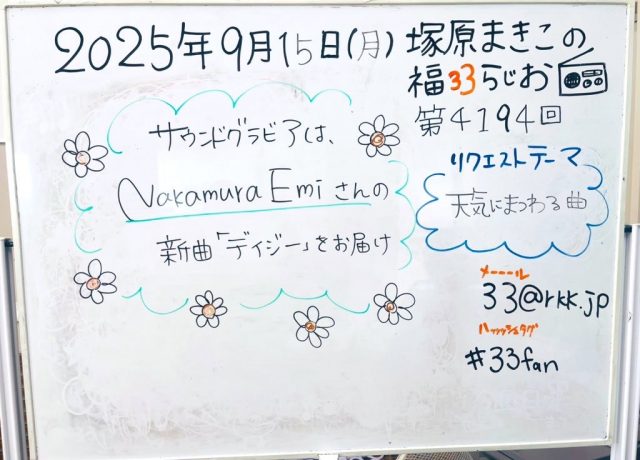 2025年9月15日(月)
塚原まきこの
福33らじお
第4194回
サウンドグラビアは、
Nakamura Emiさんの
新曲「デイジー」をお届け
リクエストテーマ
天気にまつわる曲
メーーール
33@rkk.jp
ハッッシュタグ
#33fan